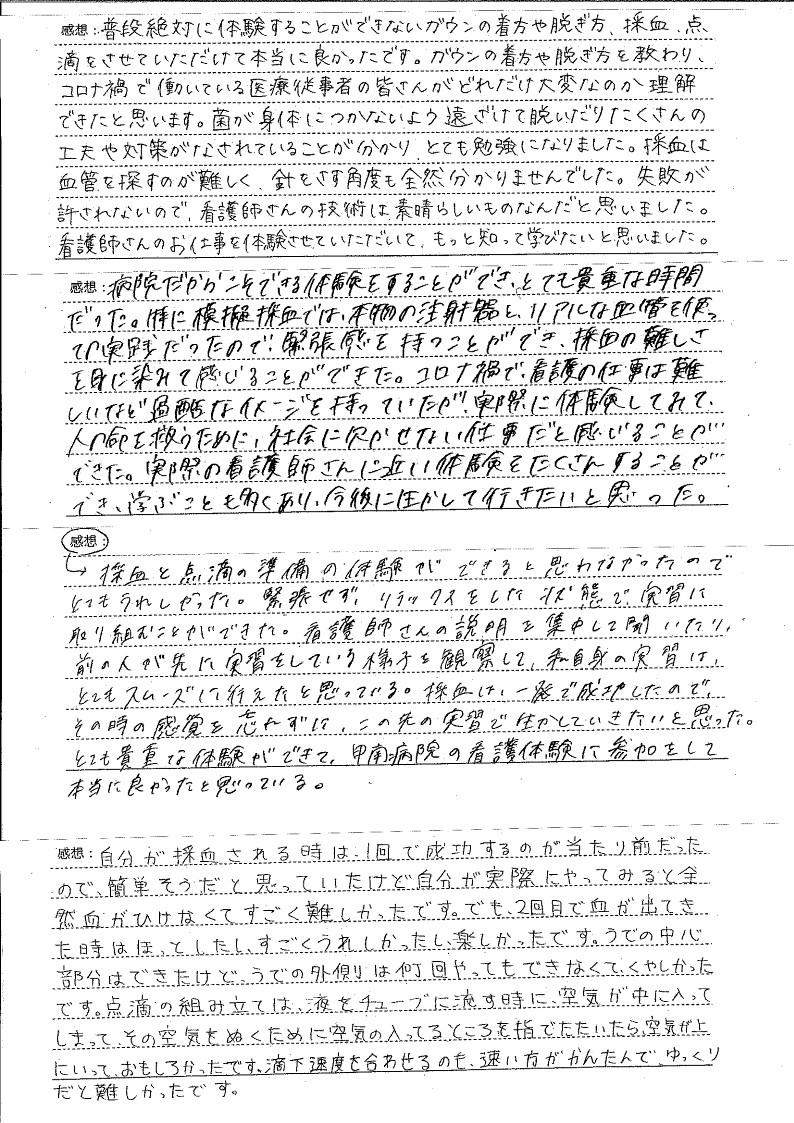 感想：普段絶対に体験することができないガウンの着方や脱ぎ方、採血、点
滴をさせていただけて本当に良かったです。ガウンの着方や脱ぎ方を教わり、
コロナ禍で働いている医療従事者の皆さんがどれだけ大変なのか理解
できたと思います。菌が身体につかないよう遠ざけて脱いだりたくさんの
工夫や対策がなされていることが分かり、とても勉強になりました。採血は
血管を探すのが難しく、針をさす角度も全然分かりませんでした。失敗が
許されないので、看護師さんの技術は素晴らしいものなんだと思いました。
看護師さんのお仕事を体験させていただいて、もっと知って学びたいと思いました。
感想：病院だからこそできる体験をすることができ、とても貴重な時間
だった。特に模擬採血では、本物の注射器と、リアルな血管を使っ
ての実践だったので、緊張感を持つことができ、採血の難しさ
を身に染みて感じることができた。コロナ禍で、看護の仕事は難
しいなど過酷なイメージを持っていたが、実際に体験してみて、
人の命を救うために、社会に欠かせない仕事だと感じることが
できた。実際の看護師さんに近い体験をたくさんすることが
でき、学ぶことも多くあり、今後に生かして行きたいと思った。
感想：
→採血と点滴の準備の体験ができると思わなかったので
とてもうれしかった。緊張せず、リラックスをした状態で、実習に
取り組むことができた。看護師さんの説明を集中して聞いたり、
前の人が先に実習をしている様子を観察して、私自身の実習は、
とてもスムーズに行えたと思っている。採血は、一発で成功したので、
その時の感覚を忘れずに、この先の実習で生かしていきたいと思った。
とても貴重な体験ができて、甲南病院の看護体験に参加をして
本当に良かったと思っている。
感想：自分が採血される時は、1回で成功するのが当たり前だった
ので、簡単そうだと思っていたけど自分が実際にやってみると全
然血がひけなくてすごく難しかったです。でも、2回目で血が出てき
た時はほっとしたし、すごくうれしかったし、楽しかったです。うでの中心
部分はできたけど、うでの外側りは何回やってもできなくて、くやしかった
です。点滴の組み立ては、液をチューブに流す時に、空気が中に入って
しまって、その空気をぬくために空気の入ってるところを指でたたいたら、空気が上
にいって、おもしろかったです。滴下速度を合わせるのも、速い方がかんたんで、ゆっくり
だと難しかったです。